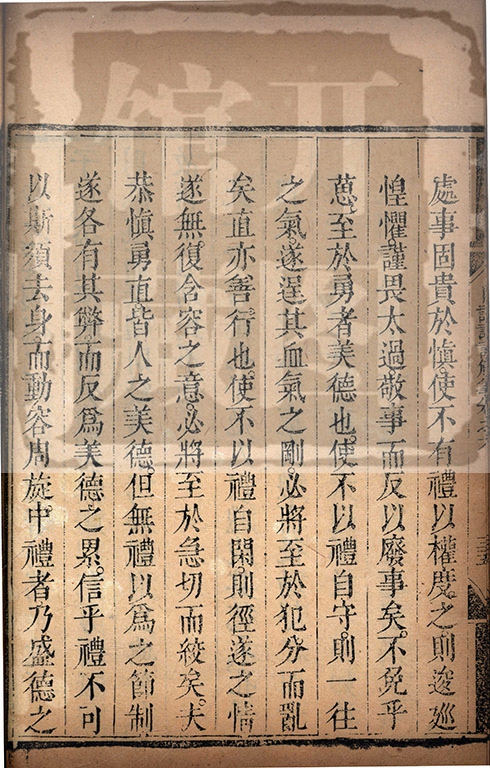 處事固貴於慎使不有禮以權度之則逡廵
惶懼謹畏太過敬事而反以廢事矣不免乎
葸至於勇者美德也使不以禮自守則一往
之氣遂逞其血氣之剛必將至於犯分而亂
矣直亦善行也使不以禮自閑則徑遂之情
遂無復含容之意必將至於急切而絞矣夫
恭慎勇直皆人之美德但無禮以為之節制
遂各有其弊而反爲美德之累信乎禮不可
以斯須去身而動容周旋中禮者乃盛德之